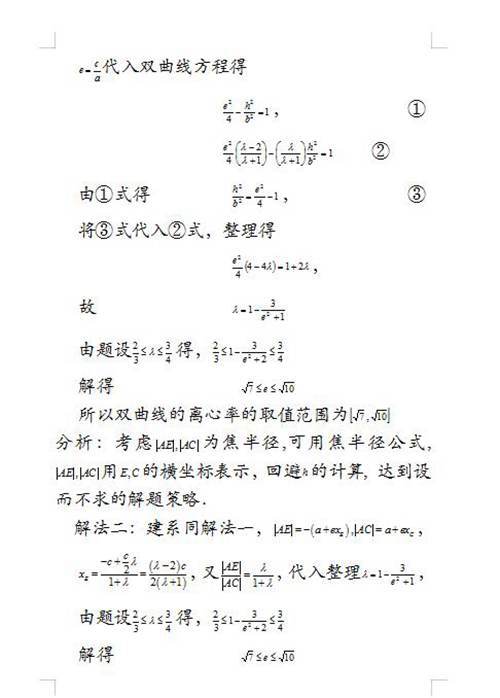 e=c/a代入双曲线方程得
e²/4-h²/b²=1， ①
e²/4((λ-2)/(λ+1))-(λ/(λ+1))h²/b²=1 ②
由①式得 h²/b²=e²/4-1， ③
将③式代入②式，整理得
e²/4(4-4λ)=1+2λ，
故 λ=1-3/(e²+1)
由题设2/3≤λ≤3/4得，2/3≤1-3/(e²+2)≤3/4
解得 √7≤e≤√10
所以双曲线的离心率的取值范围为[√7,√10]
分析：考虑|AE|,|AC|为焦半径,可用焦半径公式，
|AE|,|AC|用E,C的横坐标表示，回避h的计算，达到设
而不求的解题策略．
解法二：建系同解法一，|AE|=-(a+ex_E),|AC|=a+ex_C，
x_E=(-c+c/2λ)/(1+λ)=(λ-2)c/2(λ+1)，又|AE|/|AC|=λ/(1+λ)，代入整理λ=1-3/(e²+1)，
由题设2/3≤λ≤3/4得，2/3≤1-3/(e²+2)≤3/4
解得 √7≤e≤√10